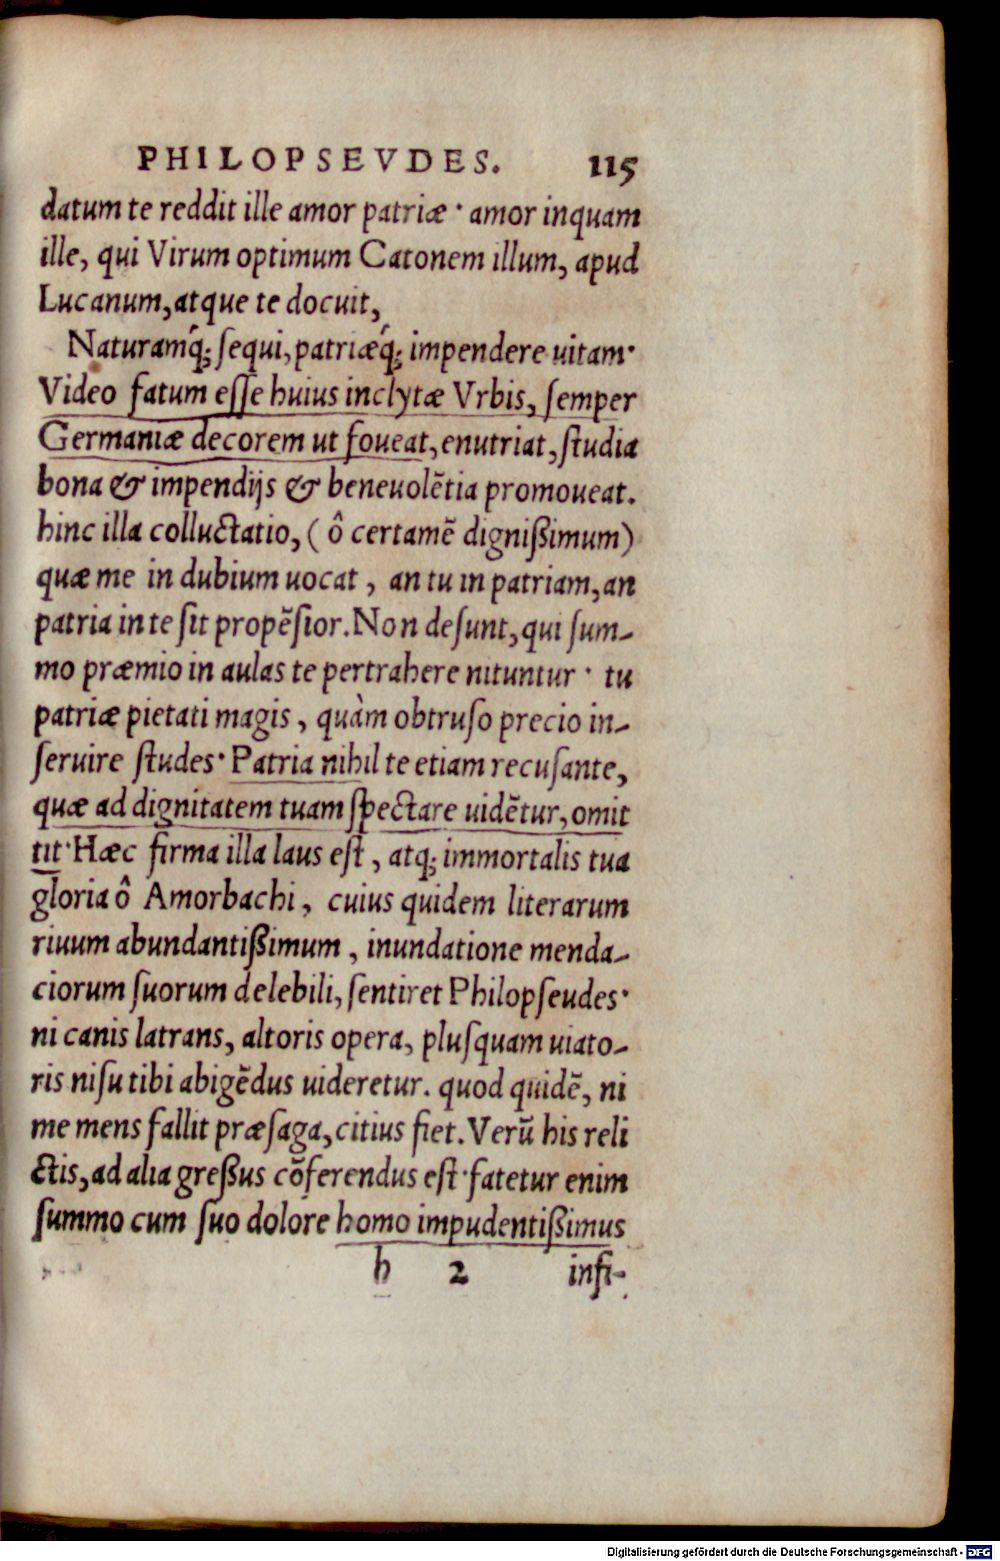 PHILOPSEVDES. 115
datum te reddit ille amor patriæ · amor inquam
ille, qui Virum optimum Catonem illum, apud
Lucanum, atque te docuit,
Naturamq́; ſequi, patriæq́; impendere uitam·
Video fatum eſſe huius inclytæ Vrbis, ſemper
Germaniæ decorem ut foueat, enutriat, ſtudia
bona & impendijs & beneuolẽtia promoueat.
hinc illa colluctatio, ( ô certamẽ digniſsimum)
quæ me in dubium uocat , an tu in patriam, an
patria in te ſit propẽſior. Non deſunt, qui ſum-
mo præmio in aulas te pertrahere nituntur · tu
patriæ pietati magis , quàm obtruſo precio in-
ſeruire ſtudes· Patria nihil te etiam recuſante,
quæ ad dignitatem tuam ſpectare uidẽtur, omit
tit· Hæc firma illa laus eſt , atq; immortalis tua
gloria ô Amorbachi , cuius quidem literarum
riuum abundantiſsimum , inundatione menda-
ciorum ſuorum delebili, ſentiret Philopſeudes·
ni canis latrans, altoris opera, pluſquam uiato-
ris niſu tibi abigẽdus uideretur. quod quidẽ, ni
me mens fallit præſaga, citius fiet. Verũ his reli
ctis, ad alia greſsus cõferendus eſt· fatetur enim
ſummo cum ſuo dolore homo impudentiſsimus
h 2 infi-
Digitalisierung gefördert durch die Deutsche Forschungsgemeinschaft - DFG